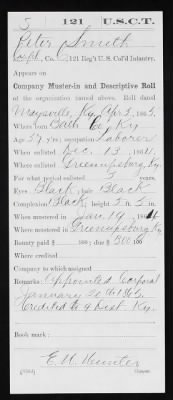 S | 121 | U.S.C.T.
Peter Smith
Corp'l, Co. C, 121 Reg't U. S. Col'd Infantry.
Appears on
Company Muster-in and Descriptive Roll
of the organization named above. Roll dated
Maysville, Ky, Apr 3, 1865.
Where born Bath Co, Ky
Age 39 y'rs; occupation Laborer
When enlisted Dec. 13, 1864.
Where enlisted Greenupsburg, Ky.
For what period enlisted 3 years.
Eyes Black; hair Black
Complexion Black; height 5 ft. 5 in.
When mustered in Jan. 19, 186
Where mustered in Greenupsburg Ky
Bounty paid $ 100; due $ 300 100
Where credited
Company to which assigned
Remarks: Appointed Corporal
January 20th 1865.
Credited to 9 Dist. Ky.
Book mark:
E. W. Hunter
Copyist.